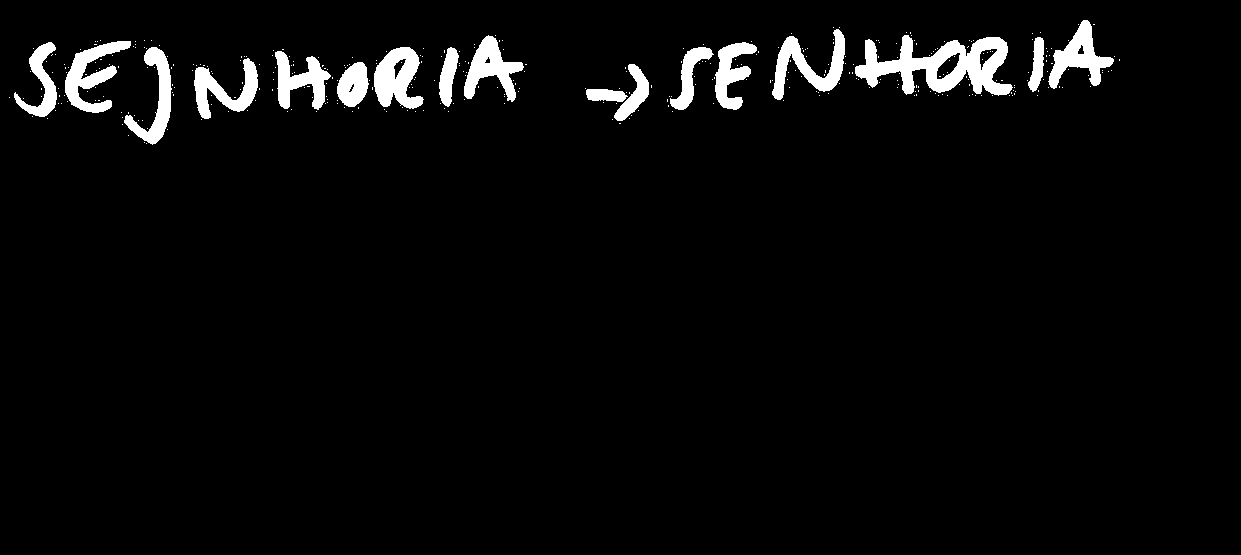 SEJNHORIA → SENHORIA